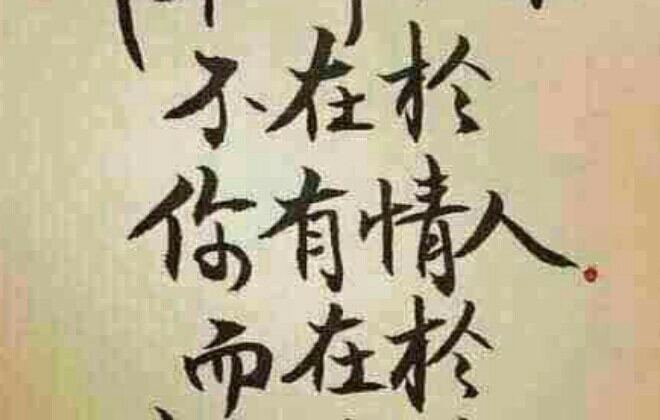 不在於
你有情人
而在於